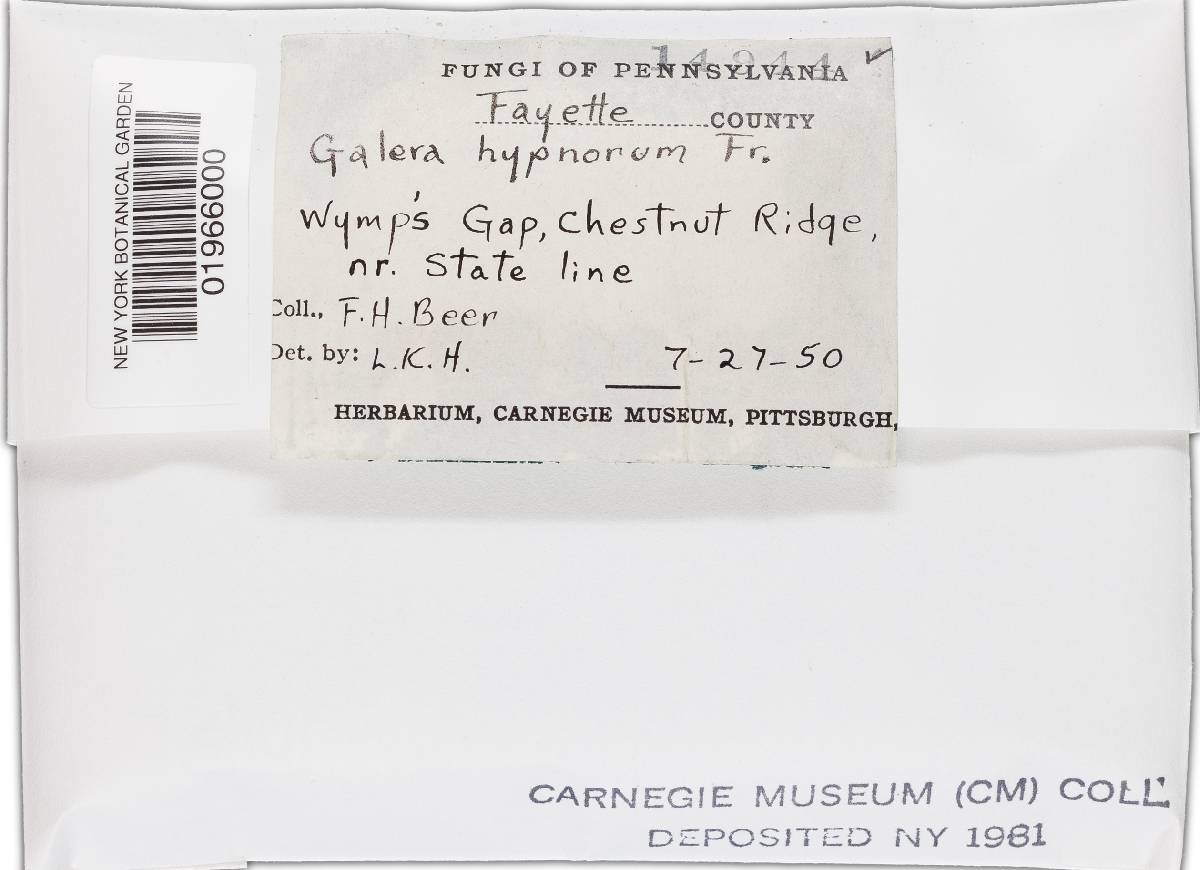 NEW YORK BOTANICAL GARDEN
01966000
14944 ✓
FUNGI OF PENNSYLVANIA
Fayette COUNTY
Galera hypnorum Fr.
Wymp's Gap, Chestnut Ridge,
nr. State line
Coll., F.H. Beer
Det. by: L.K.H. 7-27-50
HERBARIUM, CARNEGIE MUSEUM, PITTSBURGH,
CARNEGIE MUSEUM (CM) COLL.
DEPOSITED NY 1981